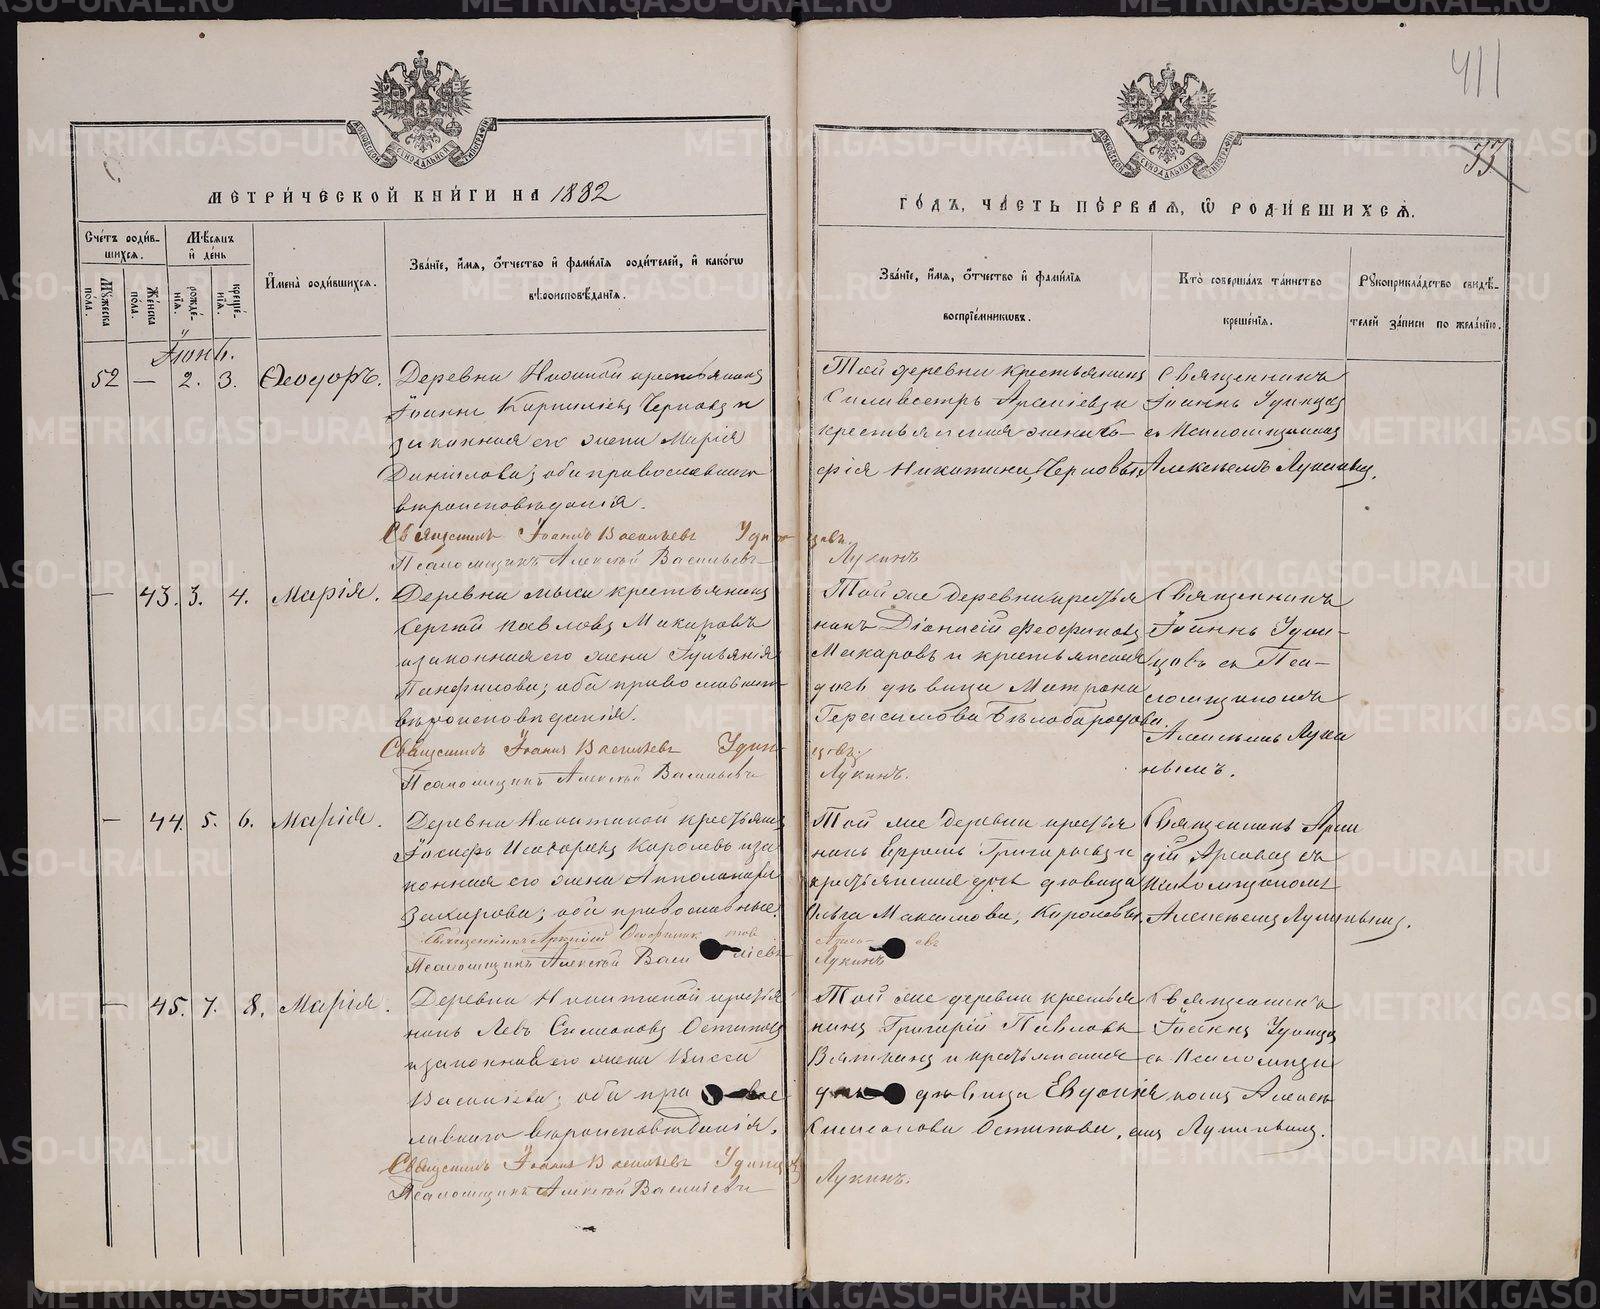 411
33
МЕТРИ́ЧЕСКОЙ КНИ́ГИ НА 1882
ГО́ДЪ, ЧА́СТЬ ПЕ́РВАЯ, Ѡ РОДИ́ВШИХСѦ.
Сче́тъ роди́в-
шихся.
Мѣ́сяцъ
и҆ де́нь
Му́жеска
по́ла.
Же́нска
по́ла.
рожде́-
нія.
креще́-
нія.
И҆мена̀ роди́вшихся.
Зва́ніе, и҆́мя, ѻ҆́тчество и҆ фами́лія роди́телей, и҆ како́гѡ
вѣроисповѣ́данія.
Зва́ніе, и҆́мя, ѻ҆́тчество и҆ фами́лія
воспріе́мникѡвъ.
Кто̀ соверша́лъ та́инство
креще́нія.
Рꙋкоприкла́дство свидѣ́-
телей за́писи по жела́нію.
Іюнь.
52 — 2. 3. Ѳеодоръ.
Деревни крестьянинъ
Іоаннъ Чернова и
законная его жена Марія
Данилова; оба православнаго
вѣроисповѣданія.
Священникъ Іоаннъ Васильевъ Удинцовъ.
Псаломщикъ Алексѣй Васильевъ Лукинъ
Той деревни крестьянинъ
Силивестръ и
крестьянская жена
Никитина, Черновы.
Священникъ
Іоаннъ Удинцовъ
съ Псаломщикомъ
Алексѣемъ Лукинымъ.
— 43. 3. 4. Марія.
Деревни Мыса крестьянинъ
Сергѣй Павловъ Макаровъ
и законная его жена
Панфилова; оба православнаго
вѣроисповѣданія.
Священникъ Іоаннъ Васильевъ Удинцовъ.
Псаломщикъ Алексѣй Васильевъ Лукинъ.
Той же деревни крестья
нинъ Діонисій
Макаровъ и крестьянская
дочь дѣвица Матрона
Герасимова Бѣлобородова.
Священникъ
Іоаннъ Удин-
цовъ съ Пса-
ломщикомъ
Алексѣемъ Луки
нымъ.
— 44. 5. 6. Марія.
Деревни Никитиной крестьянинъ
Іосифъ Королевъ и за
конная его жена
Захарова; оба православные.
Священникъ Аркадій
Псаломщикъ Алексѣй Васильевъ Лукинъ
Той же деревни крестья
нинъ Ефремъ Григорьевъ и
крестьянская дочь дѣвица
Ольга Максимова, Королевы.
Священникъ Арка
дій съ
Псаломщикомъ
Алексѣемъ Лукинымъ.
— 45. 7. 8. Марія.
Деревни Никитиной крестья
нинъ Левъ Симеоновъ
и законная его жена Васса
Васильева; оба правос
лавнаго вѣроисповѣданія.
Священникъ Іоаннъ Васильевъ Удинцовъ
Псаломщикъ Алексѣй Васильевъ Лукинъ.
Той же деревни крестья
нинъ Григорій Павловъ
Вяткинъ и крестьянская
дочь дѣвица Евдокія
Симеонова
Священникъ
Іоаннъ Удинцовъ
съ Псаломщи
комъ Алексѣ
емъ Лукинымъ.